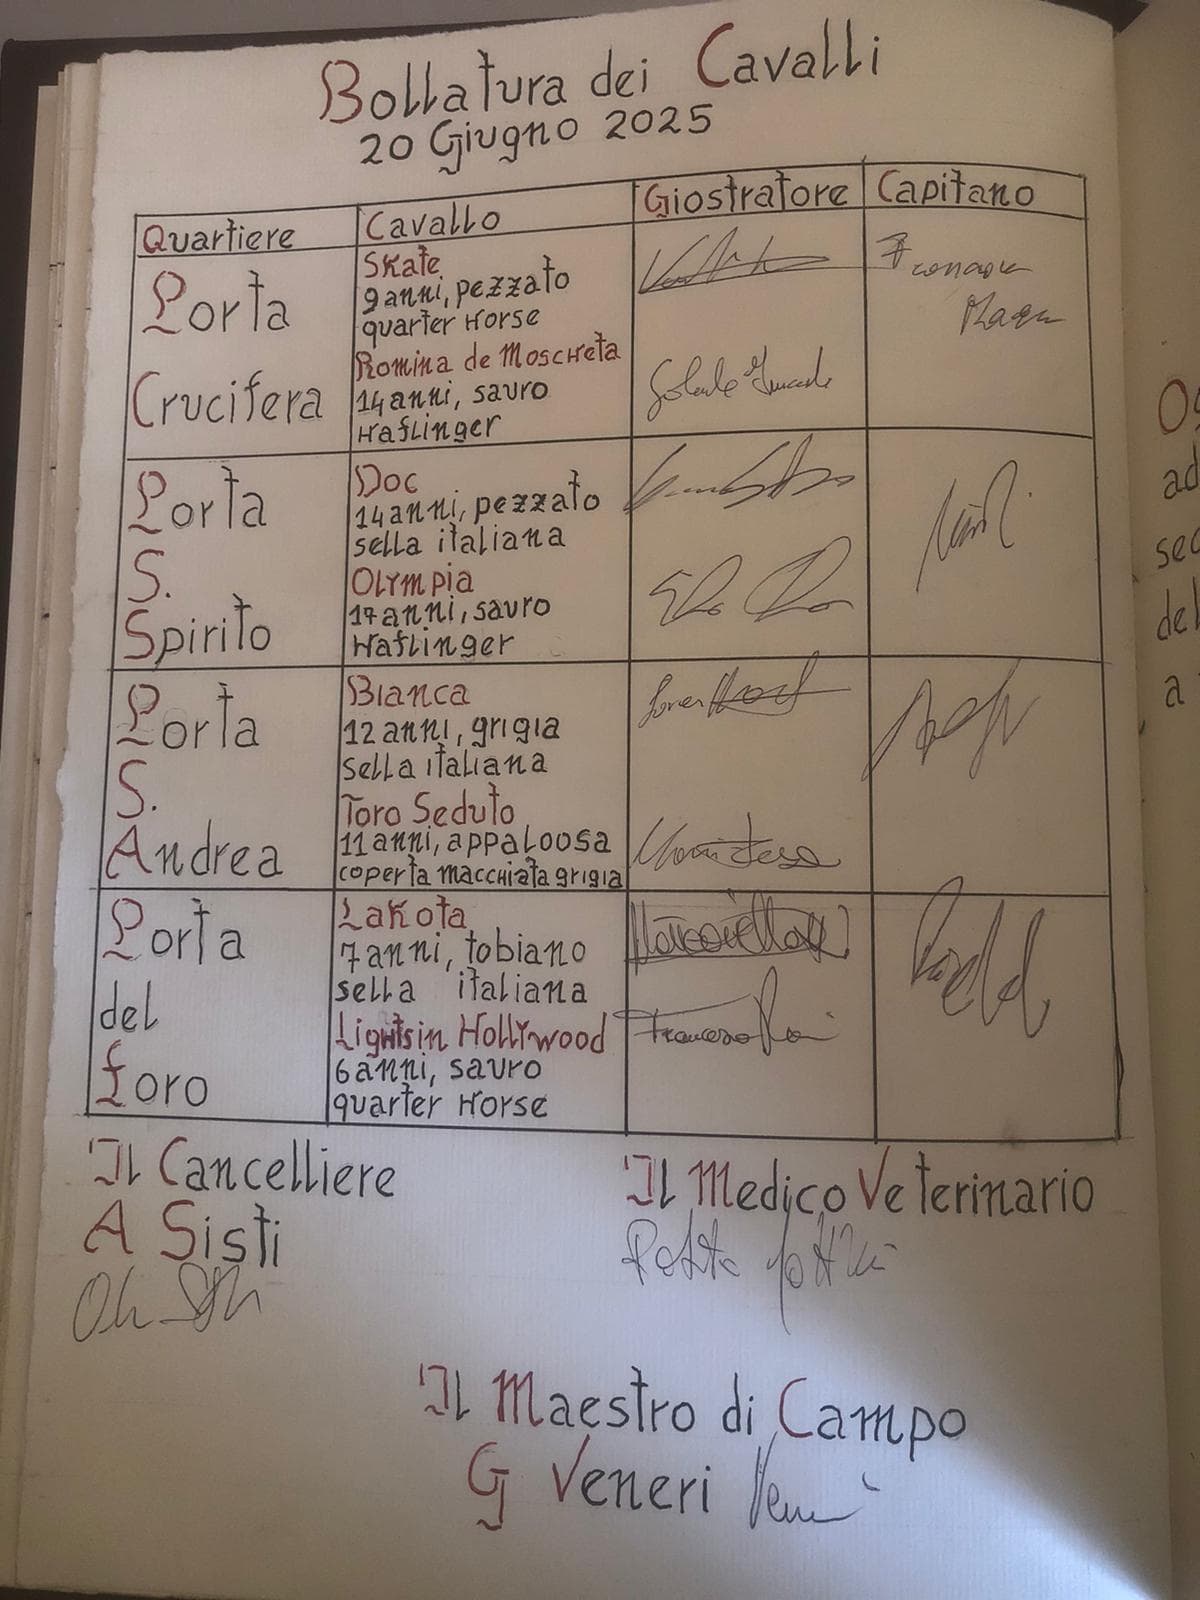 Bollatura dei Cavalli
20 Giugno 2025
Quartiere Cavallo Giostratore Capitano
Porta
Crucifera
Skate
9 anni, pezzato
quarter Horse
Romina de Moscheta
14 anni, sauro
Haflinger
Porta
S.
Spirito
Doc
14 anni, pezzato
sella italiana
Olympia
17 anni, sauro
Haflinger
Porta
S.
Andrea
Bianca
12 anni, grigia
sella italiana
Toro Seduto
11 anni, appaloosa
coperta macchiata grigia
Porta
del
Foro
Lakota
7 anni, tobiano
sella italiana
Lights in Hollywood
6 anni, sauro
quarter Horse
Francesco
Il Cancelliere
A Sisti
Il Medico Veterinario
Il Maestro di Campo
G Veneri
Oc
ad
sec
del
a